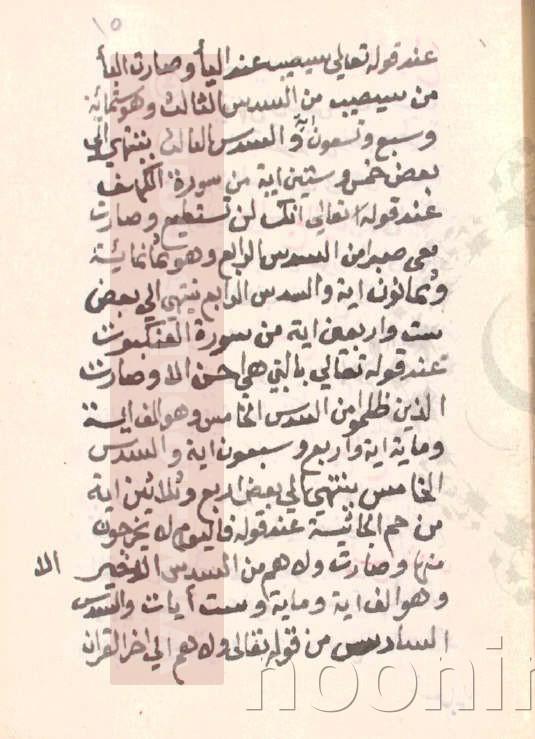 ١٥
عند قوله تعالى سيصيب عند اليأ وصارت اليأ
من سيصيب من السدس الثالث وهو ستمائة
وسبع وتسعون اية والسدس الثالث ينتهي الى
بعض خمس وستين اية من سورة الكهف
عند قوله تعالى انك لن تستطيع وصارت
معي صبرا من السدس الرابع وهو ثمانمائية
وثمانون اية والسدس الرابع ينتهي الي بعض
ست واربعين اية من سورة العنكبوت
عند قوله تعالي بالتي هي احسن الا وصارت
الذين ظلموا من السدس الخامس وهو الف اية
وماية اية واربع وسبعون اية والسدس
الخامس ينتهي الي بعض اربع وثلاثين اية
من حم الجاثية عند قوله فاليوم لا يخرجون
منها وصارت ولا هم من السدس الاخير الا
وهو الف اية وماية وست أيات والسدس
السادس من قوله تعالى ولا هم الي اخر القران
noonin